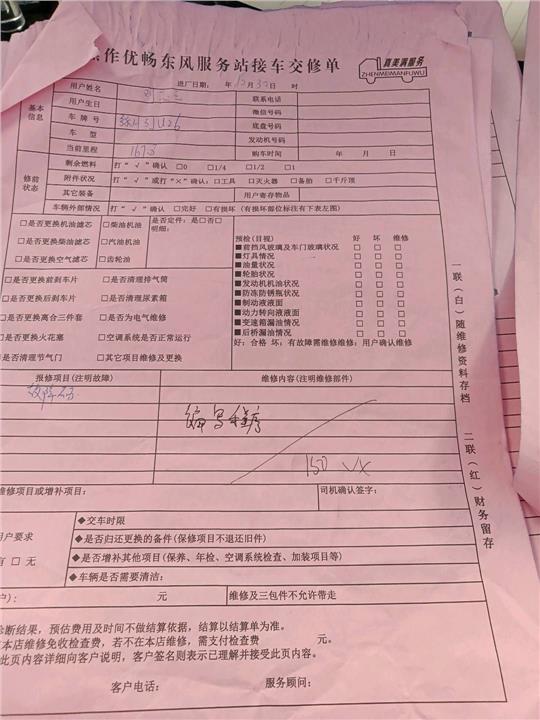 作优畅东风服务站接车交修单
真美满服务
ZHENMEIMANFUWU
进厂日期: 年 月 日 时
基本信息
用户姓名 联系电话
用户生日 微信号码
车牌号 底盘号码
车型 发动机号码
当前里程 1673 购车时间 年 月 日
修前状态
剩余燃料 打“√”确认 □0 □1/4 □1/2 □1
附件状况 打“√”或打“×”确认:□工具 □灭火器 □备胎 □千斤顶
其它装备 用户寄存物品
车辆外部情况 打“√”确认 □完好 □有损坏 (有损坏部位标注有下表左图)
□是否更换机油滤芯 □柴油机油 是否定件:是□否□
□是否更换柴油滤芯 □汽油机油 明细:
□是否更换空气滤芯 □齿轮油
□是否更换前刹车片 □是否清理排气筒
□是否更换后刹车片 □是否清理尿素箱
□是否更换离合三件套 □是否为电气维修
□是否更换火花塞 □空调系统是否正常运行
□是否清理节气门 □其它项目维修及更换
预检(目视) 好 坏 维修
■前挡风玻璃及车门玻璃状况 □ □ □
■灯具情况 □ □ □
■油量状况 □ □ □
■轮胎状况 □ □ □
■发动机机油状况 □ □ □
■防冻防锈瓶状况 □ □ □
■制动液液面 □ □ □
■动力转向液液面 □ □ □
■变速箱漏油情况 □ □ □
■后桥漏油情况 □ □ □
好:合格 坏:有故障需维修维修:用户确认维修
报修项目(注明故障) 维修内容(注明维修部件)
编写程序
150 VX
维修项目或增补项目: 司机确认签字:
用户要求
有 □ 无
◆交车时限
◆是否归还更换的备件(保修项目不退还旧件)
◆是否增补其他项目(保养、年检、空调系统检查、加装项目等)
◆车辆是否需要清洁:
户): 元 维修及三包件不允许带走
诊断结果,预估费用及时间不做结算依据,结算以结算单为准。
本店维修免收检查费,若不在本店维修,需支付检查费 元。
此页内容详细向客户说明,客户签名则表示已理解并接受此页内容。
客户电话: 服务顾问:
一联(白)随维修资料存档 二联(红)财务留存